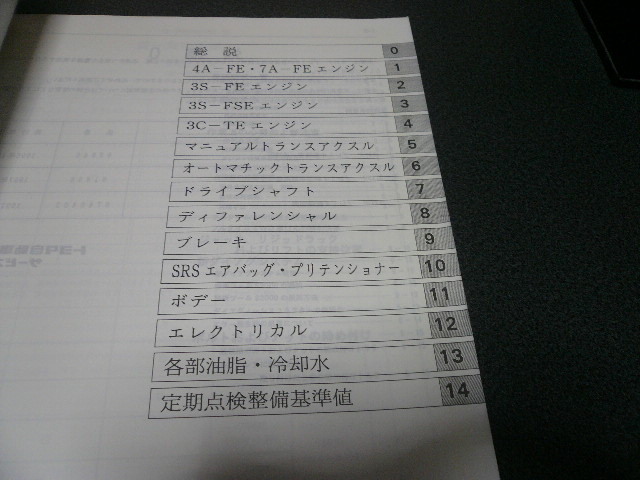 総 説 0
4A－FE・7A－FEエンジン 1
3S－FEエンジン 2
3S－FSEエンジン 3
3C－TEエンジン 4
マニュアルトランスアクスル 5
オートマチックトランスアクスル 6
ドライブシャフト 7
ディファレンシャル 8
ブレーキ 9
SRSエアバッグ・プリテンショナー 10
ボデー 11
エレクトリカル 12
各部油脂・冷却水 13
定期点検整備基準値 14